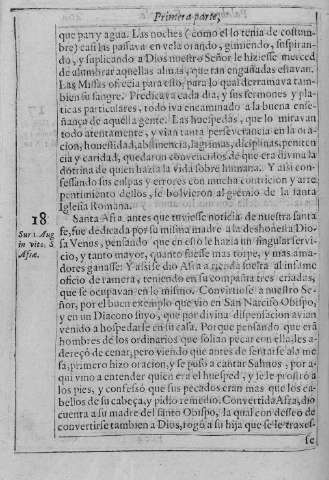 Primera parte,
que pan y agua. Las noches (como el lo tenia de costum-
bre) casi las passava en vela orando, gimiendo, suspiran-
do, y suplicando a Dios nuestro Señor le hiziesse merced
de alumbrar aquellas almas, que tan engañadas estavan.
Las Missas ofrecia para esto, para lo qual derramava tam-
bien su sangre. Predicava cada dia, y sus sermones y plati-
cas particulares, todo iva encaminado a la buena ense-
ñança de aquella gente. Las huespedas, que lo miravan
todo atentamente, y vian tanta perseverancia en la ora-
cion, honestidad, abstinencia, lagrimas, diciplinas, peniten
cia y caridad, quedaron convencidos de que era divina la
dotrina de quien hazia la vida sobre humana. Y assi con-
fessando sus culpas y errores con mucha contricion y arre
pentimiento dellos, se bolvieron al gremio de la santa
Iglesia Romana.
18 Santa Afra antes que tuviesse noticia de nuestra santa
Sur. 1. Aug fe, fue dedicada por su misma madre a la deshonesta Dio-
in vita. S. sa Venus, pensando que en esso le hazia un singular servi-
Afræ. cio, y tanto mayor, quanto fuesse mas torpe, y mas ama-
dores ganasse: Y assi se dio Afra a rienda suelta al infame
oficio de ramera, teniendo en su compañia tres criadas,
que se ocupavan en lo mismo. Convirtiose a nuestro Se-
ñor, por el buen exemplo que vio en San Narciso Obispo,
y en un Diacono suyo, que por divina dispensacion avian
venido a hospedarse en su casa. Porque pensando que eran
hombres de los ordinarios que solian pecar con ella, les a-
dereçò de cenar, pero viendo que antes de sentarse a la me
sa, primero hizo oracion, y se puso a cantar Salmos, por a-
qui vino a entender quien era el huesped, y se le prostrò a
los pies, y confessò que sus pecados eran mas que los ca-
bellos de su cabeça, y pidio remedio. Convertida Afra, dio
cuenta a su madre del santo Obispo, la qual con desseo de
convertirse tambien a Dios, rogò a su hija que se le traxes-
se